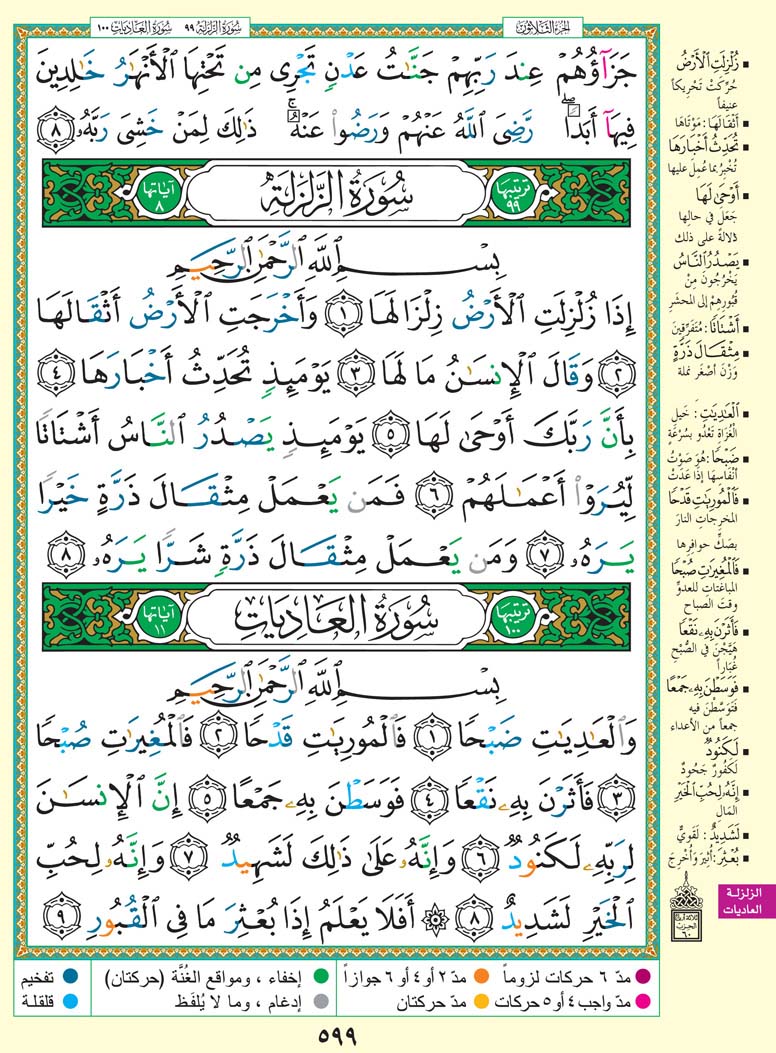 سُورَةُ الزَّلْزَلَةِ ٩٩ سُورَةُ العَادِيَاتِ ١٠٠
الجُزْءُ الثَّلَاثُونَ
جَزَآؤُهُمْ عِندَ رَبِّهِمْ جَنَّٰتُ عَدْنٍ تَجْرِى مِن تَحْتِهَا ٱلْأَنْهَٰرُ خَٰلِدِينَ
فِيهَآ أَبَدًا ۖ رَّضِىَ ٱللَّهُ عَنْهُمْ وَرَضُوا۟ عَنْهُ ۚ ذَٰلِكَ لِمَنْ خَشِىَ رَبَّهُۥ ٨
ترتيبها ٩٩ سُورَةُ الزَّلْزَلَةِ آياتها ٨
بِسْمِ ٱللَّهِ ٱلرَّحْمَٰنِ ٱلرَّحِيمِ
إِذَا زُلْزِلَتِ ٱلْأَرْضُ زِلْزَالَهَا ١ وَأَخْرَجَتِ ٱلْأَرْضُ أَثْقَالَهَا
٢ وَقَالَ ٱلْإِنسَٰنُ مَا لَهَا ٣ يَوْمَئِذٍ تُحَدِّثُ أَخْبَارَهَا ٤
بِأَنَّ رَبَّكَ أَوْحَىٰ لَهَا ٥ يَوْمَئِذٍ يَصْدُرُ ٱلنَّاسُ أَشْتَاتًا
لِّيُرَوْا۟ أَعْمَٰلَهُمْ ٦ فَمَن يَعْمَلْ مِثْقَالَ ذَرَّةٍ خَيْرًا
يَرَهُۥ ٧ وَمَن يَعْمَلْ مِثْقَالَ ذَرَّةٍ شَرًّا يَرَهُۥ ٨
ترتيبها ١٠٠ سُورَةُ العَادِيَاتِ آياتها ١١
بِسْمِ ٱللَّهِ ٱلرَّحْمَٰنِ ٱلرَّحِيمِ
وَٱلْعَٰدِيَٰتِ ضَبْحًا ١ فَٱلْمُورِيَٰتِ قَدْحًا ٢ فَٱلْمُغِيرَٰتِ صُبْحًا
٣ فَأَثَرْنَ بِهِۦ نَقْعًا ٤ فَوَسَطْنَ بِهِۦ جَمْعًا ٥ إِنَّ ٱلْإِنسَٰنَ
لِرَبِّهِۦ لَكَنُودٌ ٦ وَإِنَّهُۥ عَلَىٰ ذَٰلِكَ لَشَهِيدٌ ٧ وَإِنَّهُۥ لِحُبِّ
ٱلْخَيْرِ لَشَدِيدٌ ٨ ۞ أَفَلَا يَعْلَمُ إِذَا بُعْثِرَ مَا فِى ٱلْقُبُورِ ٩
▪ زُلْزِلَتِ ٱلْأَرْضُ
حُرِّكَتْ تَحْرِيكاً
عنيفاً
▪ أَثْقَالَهَا : مَوْتَاهَا
▪ تُحَدِّثُ أَخْبَارَهَا
تُخْبِرُ بما عُمِلَ عليها
▪ أَوْحَىٰ لَهَا
جَعَلَ في حالِها
دَلالةً على ذلك
▪ يَصْدُرُ ٱلنَّاسُ
يَخْرُجُونَ مِنْ
قُبُورِهِمْ إلى المحشَرِ
▪ أَشْتَاتًا : مُتَفَرِّقِينَ
▪ مِثْقَالَ ذَرَّةٍ
وَزْنَ أَصْغَرِ نملة
▪ ٱلْعَٰدِيَٰتِ : خَيلِ
الغُزَاةِ تَعْدُو بسُرْعَةٍ
▪ ضَبْحًا : هُوَ صَوْتُ
أَنْفَاسِهَا إِذَا عَدَتْ
▪ فَٱلْمُورِيَٰتِ قَدْحًا
المخرجاتِ النارَ
بِصَكِّ حوافِرِها
▪ فَٱلْمُغِيرَٰتِ صُبْحًا
المباغتاتِ للعدوِّ
وقتَ الصباح
▪ فَأَثَرْنَ بِهِۦ نَقْعًا
هَيَّجْنَ في الصُّبْحِ
غُبَاراً
▪ فَوَسَطْنَ بِهِۦ جَمْعًا
فتَوَسَّطْنَ فيه
جمعاً من الأعداء
▪ لَكَنُودٌ
لَكَفُورٌ جَحُودٌ
▪ إِنَّهُۥ لِحُبِّ ٱلْخَيْرِ
المَال
▪ لَشَدِيدٌ : لَقَوِيٌّ
▪ بُعْثِرَ : أُثِيرَ وَأُخْرِجَ
الزلزلة
العاديات
ثلاثة أرباع
الحزب
٦٠
مدّ ٦ حركات لزوماً مدّ ٢ أو ٤ أو ٦ جوازاً إخفاء ، ومواقع الغُنَّة (حركتان) تفخيم
مدّ واجب ٤ أو ٥ حركات مدّ حركتان إدغام ، وما لا يُلفَظ قلقلة
٥٩٩